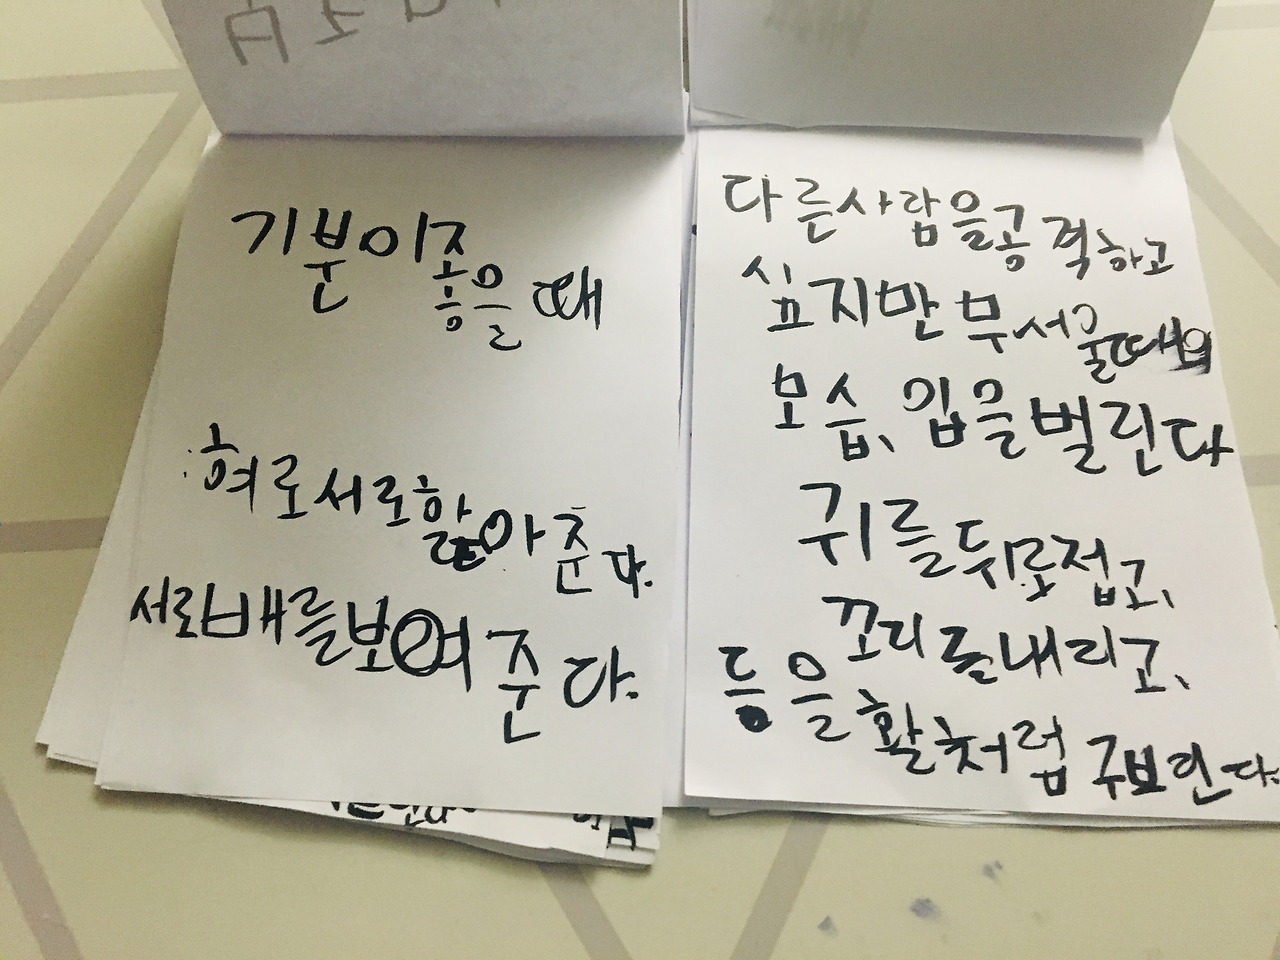 기분이좋을때
혀로서로핥아준다.
서로배를보여준다.
다른사람을공격하고
싶지만무서울때의
모습、입을벌린다
귀를뒤로접고、
꼬리를내리고、
등을활처럼구부린다.